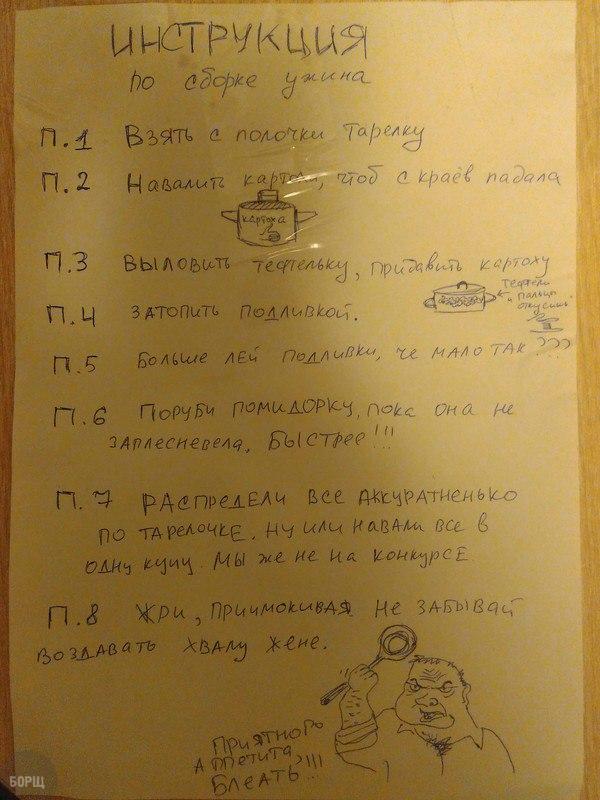 ИНСТРУКЦИЯ
по сборке ужина
П.1 Взять с полочки тарелку
П.2 Навалить картохи, чтоб с краёв падала
картоха
П.3 Выловить тефтельку, придавить картоху
тефтели
и пальцы
откусишь
П.4 Затопить подливкой.
П.5 Больше лей подливки, че мало так???
П.6 Поруби помидорку, пока она не
заплесневела, быстрее!!!
П.7 Распредели все аккуратненько
по тарелочке. Ну или навали все в
одну кучу. Мы же не на конкурсе
П.8 Жри, причмокивая не забывай
воздавать хвалу жене.
Приятного
аппетита
Блеать!!!
БОРЩ